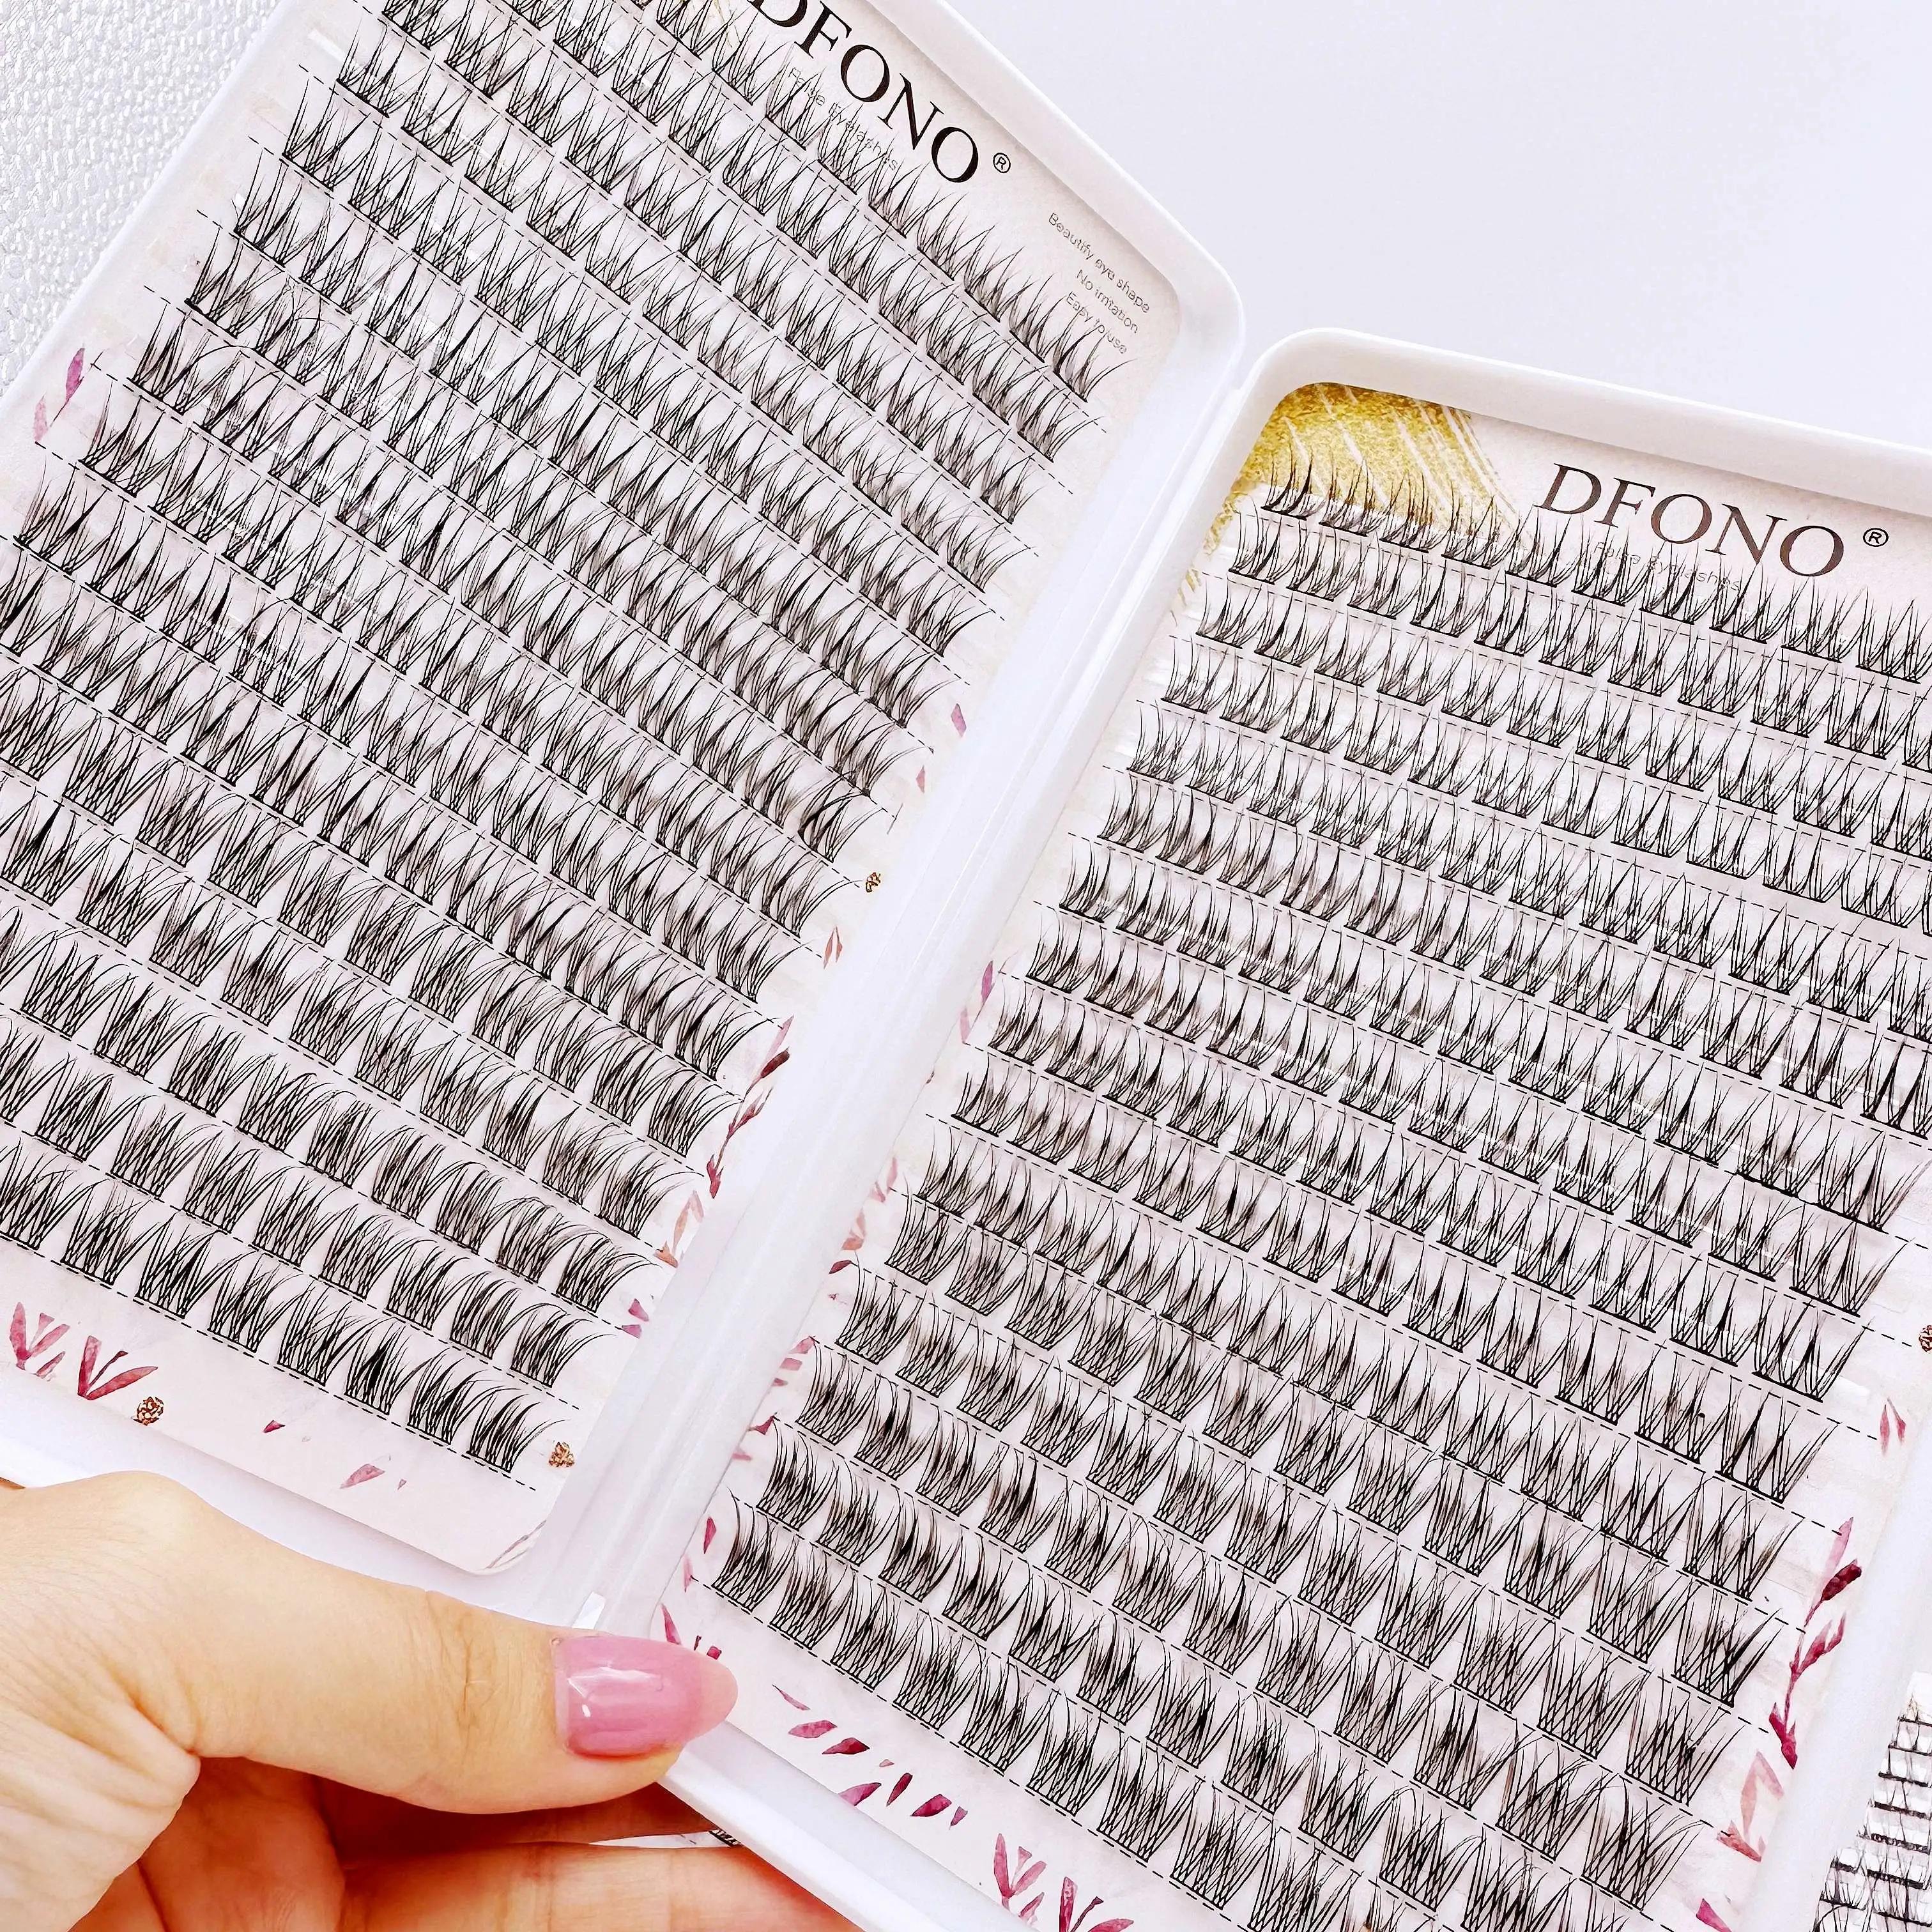 DFONO®
False Eyelashes
Beautify eye shape
No irritation
Easy to use
DFONO®
False Eyelashes